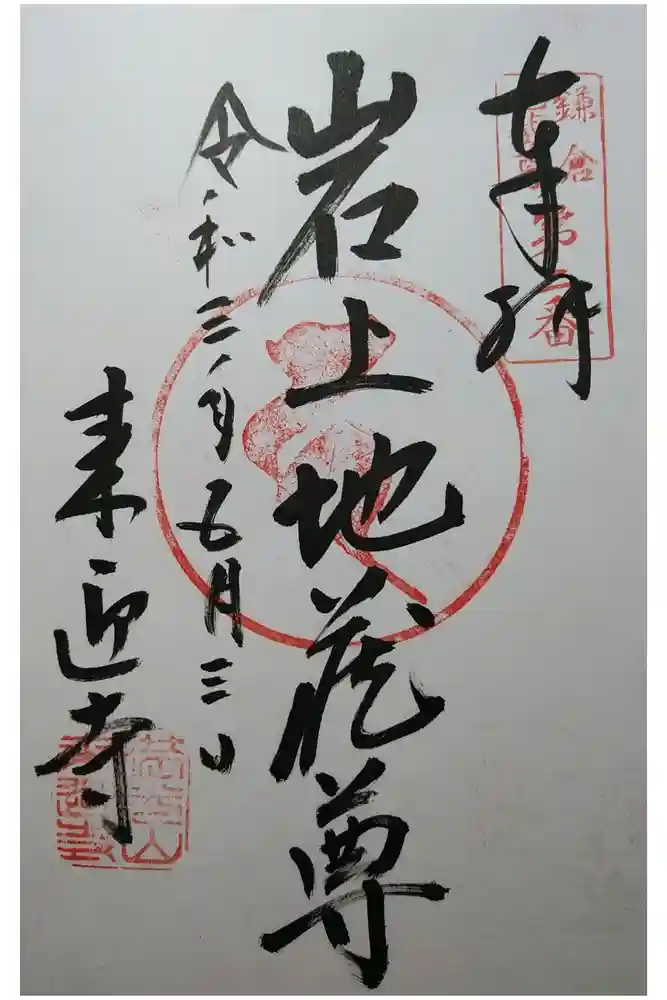 奉拝
鎌倉
第三番
岩上地蔵尊
令和三年五月三日
来迎寺